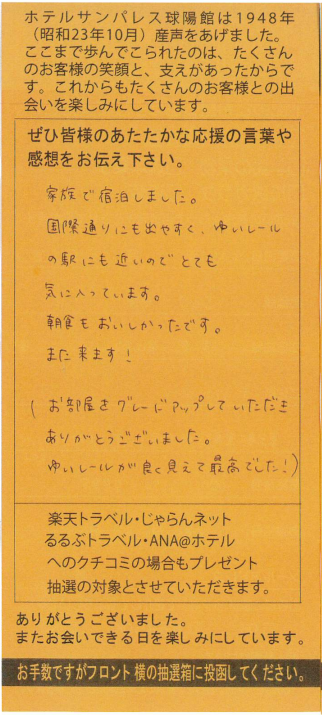 ホテルサンパレス球陽館は1948年
（昭和23年10月）産声をあげました。
ここまで歩んでこられたのは、たくさん
のお客様の笑顔と、支えがあったからで
す。これからもたくさんのお客様との出
会いを楽しみにしています。
ぜひ皆様のあたたかな応援の言葉や
感想をお伝え下さい。
家族で宿泊しました。
国際通りにも出やすく、ゆいレール
の駅にも近いのでとても
気に入っています。
朝食もおいしかったです。
また来ます！
（お部屋をグレードアップしていただき
ありがとうございました。
ゆいレールが良く見えて最高でした！）
楽天トラベル・じゃらんネット
るるぶトラベル・ANA@ホテル
へのクチコミの場合もプレゼント
抽選の対象とさせていただきます。
ありがとうございました。
またお会いできる日を楽しみにしています。
お手数ですがフロント横の抽選箱に投函してください。